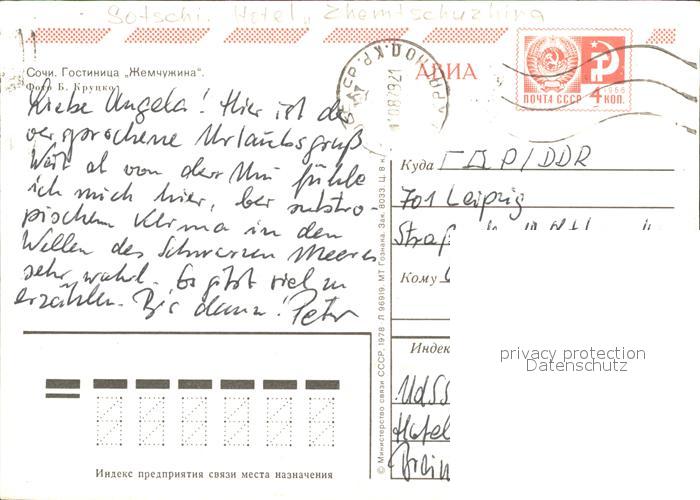 Sotschi. Hotel „Zhemtschuzhina
Сочи. Гостиница „Жемчужина".
Фото Б. Крупко
АВИА
ПОЧТА СССР 4 КОП.
1966
Liebe Angela! Hier ist der
versprochene Urlaubsgruß
Weit ab von der Uni fühle
ich mich hier, bei subtro-
pischem Klima in den
Wellen des Schwarzen Meeres
sehr wohl. Es gibt viel zu
erzählen. Bis dann! Peter
Куда ГДР/DDR
701 Leipzig
Straß
Кому
Индек
UdSS
Hotel
privacy protection
Datenschutz
© Министерство связи СССР, 1978 Л 96919. МТ Гознака. Зак. 8033. Ц. 8 к.
Индекс предприятия связи места назначения